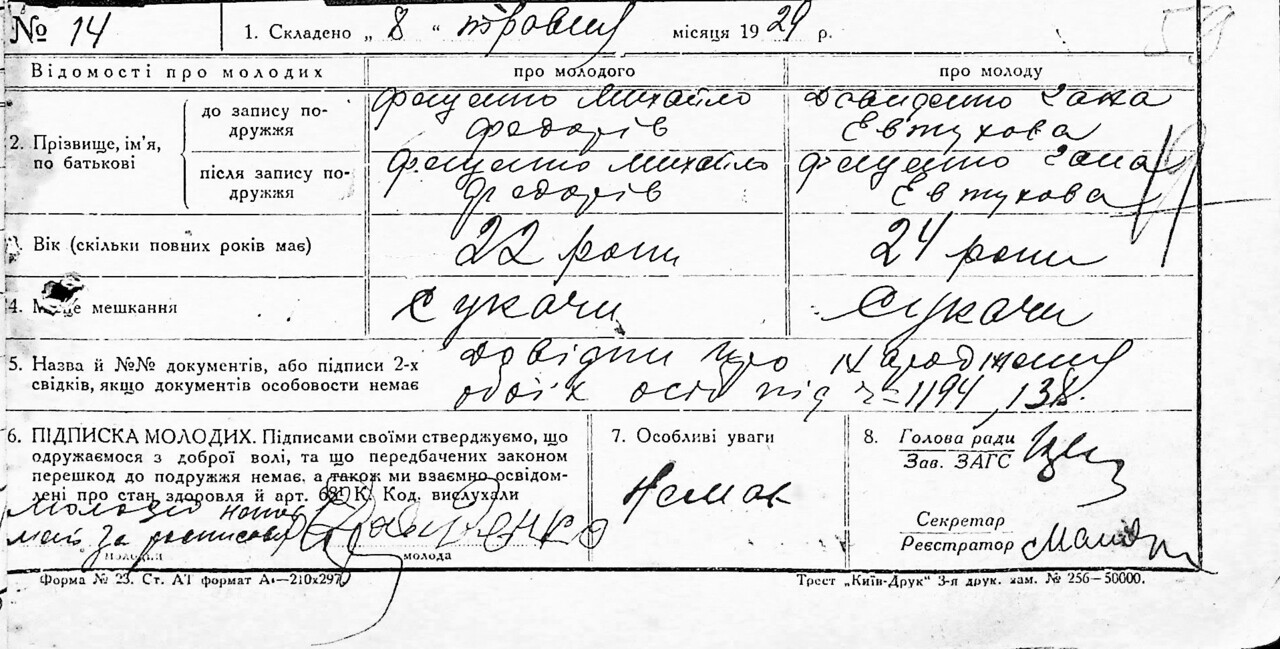 № 14 1. Складено „ 8 “ травня місяця 1929 р.
Відомості про молодих про молодого про молоду
2. Прізвище, ім'я, по батькові
до запису по-
дружжя
Фещенко Михайло
Федорів
Давиденко Ганна
Евтухова
після запису по-
дружжя
Фещенко Михайло
Федорів
Фещенко Ганна
Евтухова
3. Вік (скільки повних років має) 22 роки 24 роки
4. Місце мешкання Сукачи Сукачи
5. Назва й №№ документів, або підписи 2-х
свідків, якщо документів особовости немає
Довідки про народження
обоїх осіб під ч= 1194, 138.
6. ПІДПИСКА МОЛОДИХ. Підписами своїми стверджуємо, що
одружаємося з доброї волі, та що передбачених законом
перешкод до подружжя немає, а також ми взаємно освідом-
лені про стан здоровля й арт. К. Код. вислухали
Молодий
за Давиденко
молодий молода
7. Особливі уваги
Немає
8. Голова ради
Зав. ЗАГС
Секретар
Реєстратор
Форма № 23. Ст. А1 формат А—210х297.
Трест „Київ-Друк“ 3-я друк. зам. № 256—50000.